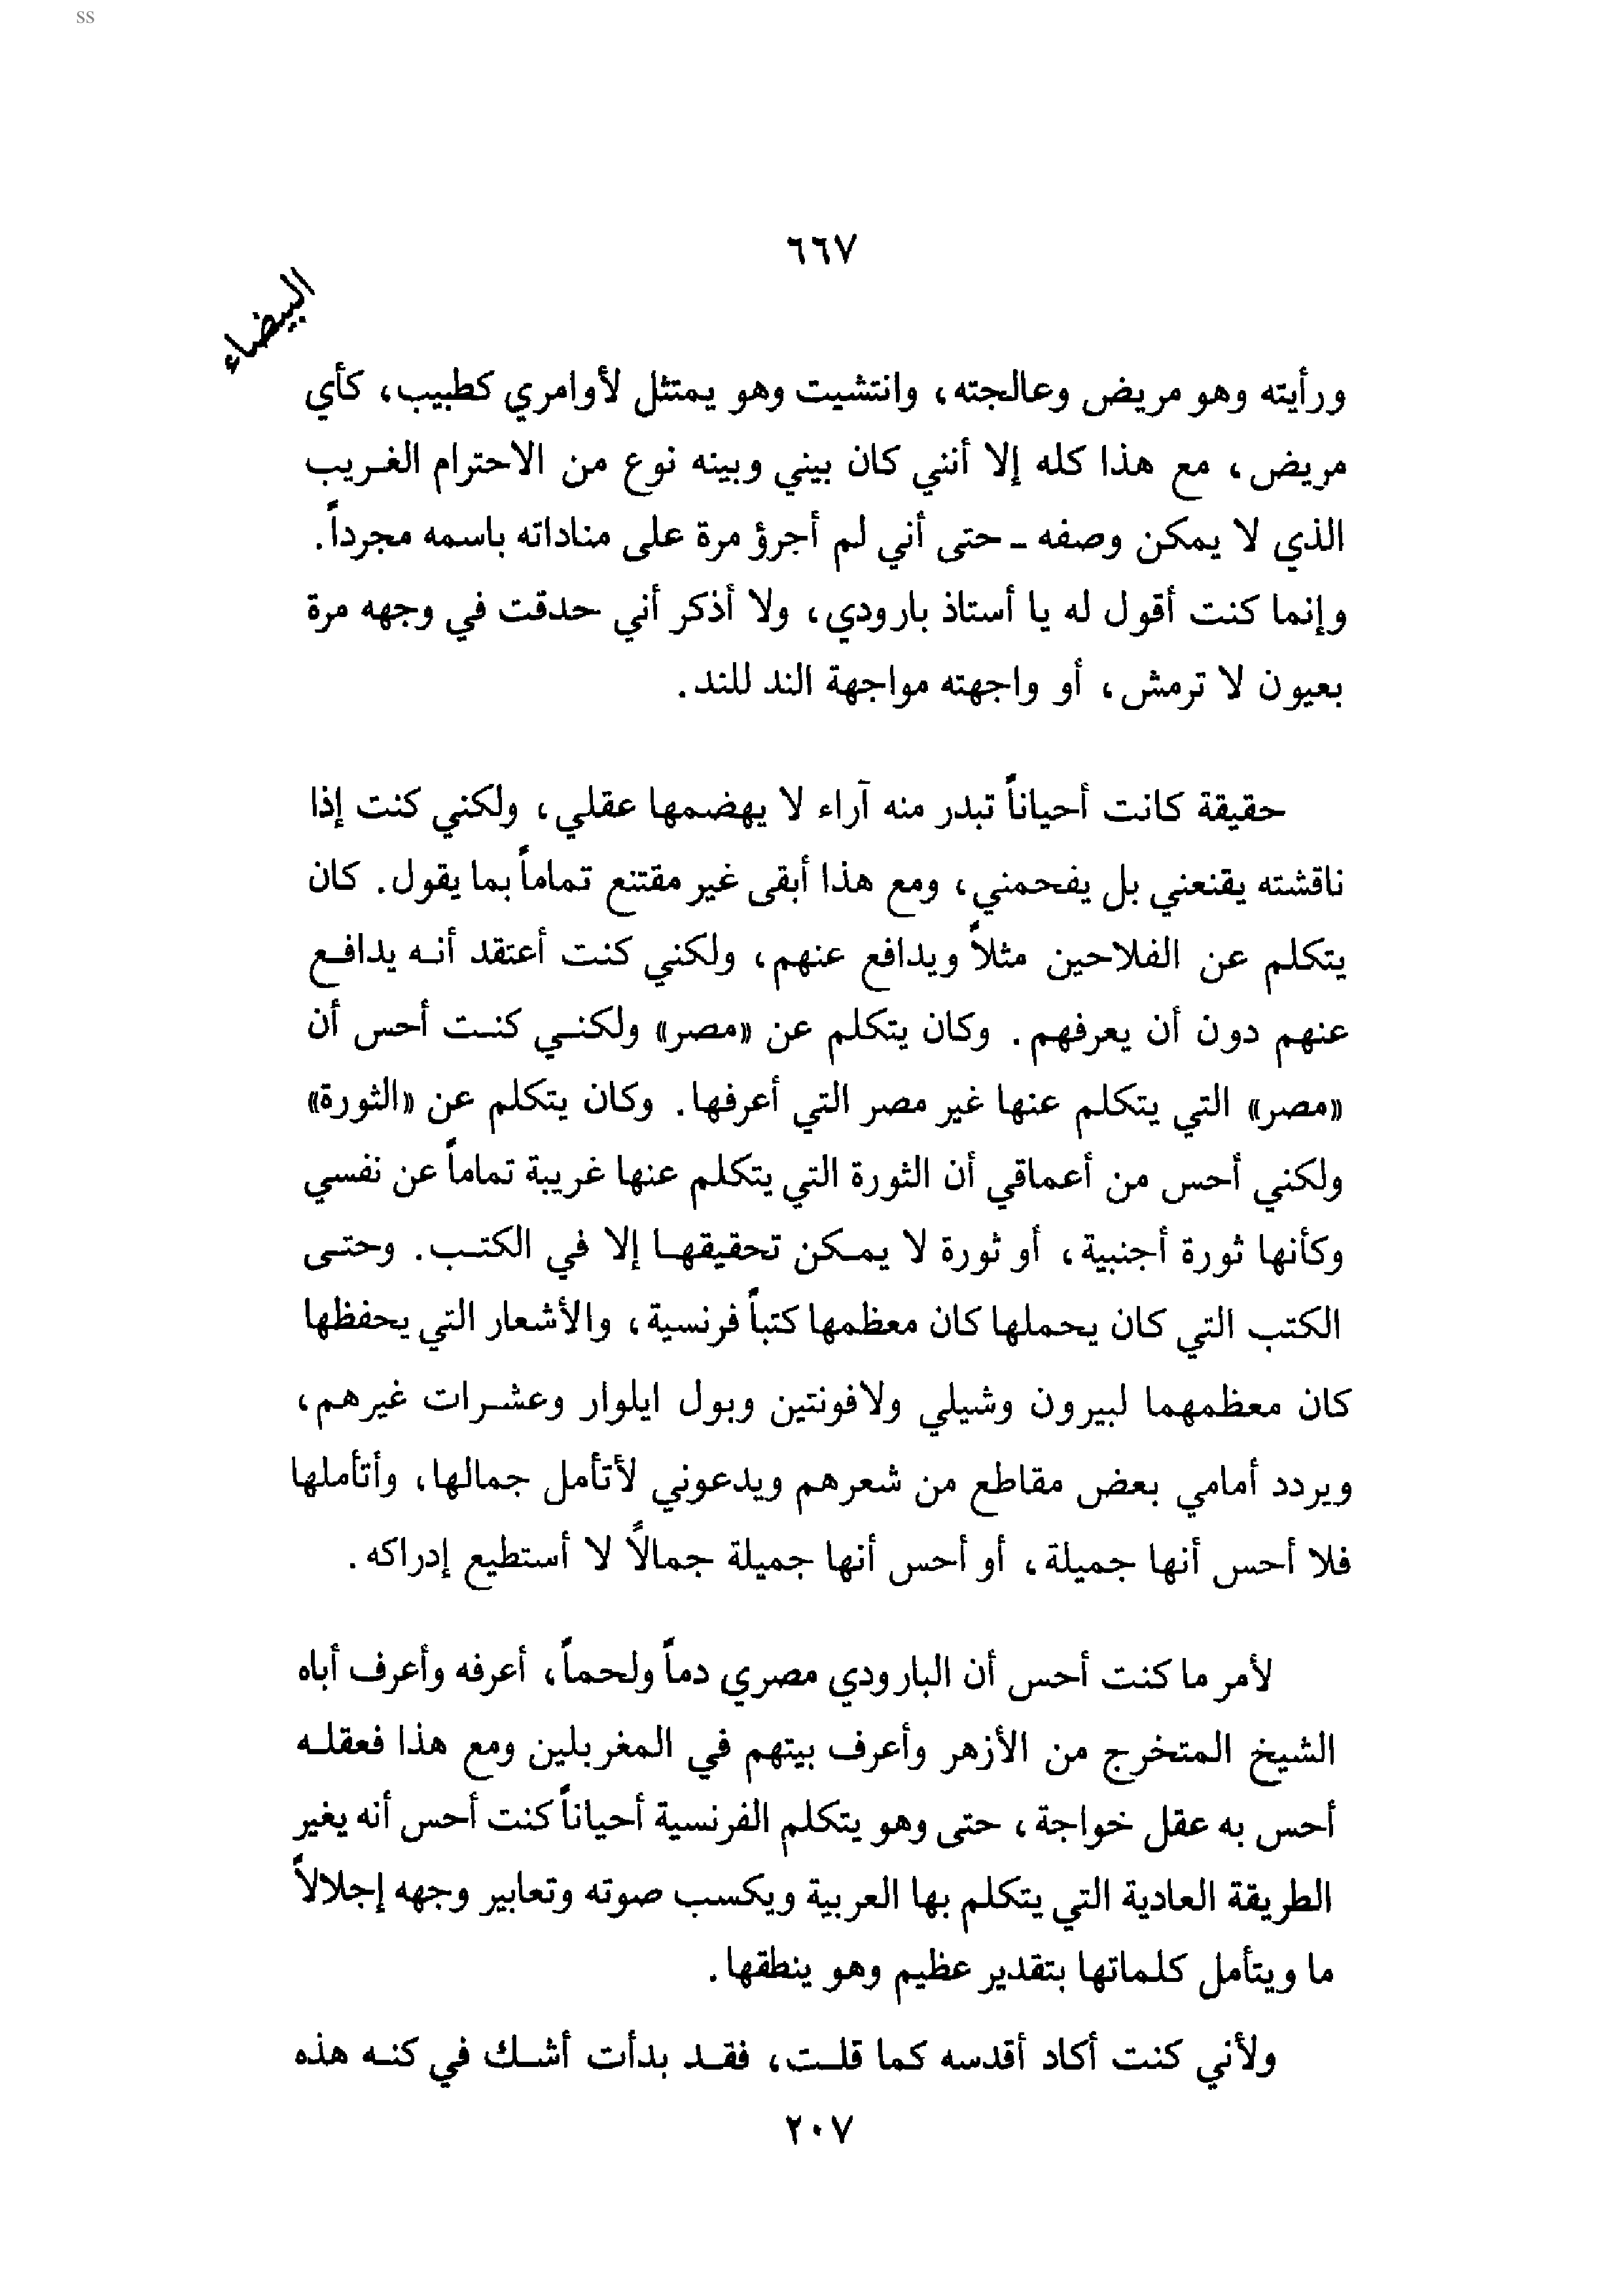 ss
٦٦٧
البيضاء
ورأيته وهو مريض وعالجته، وانتشيت وهو يمتثل لأوامري كطبيب، كأي
مريض، مع هذا كله إلا أنني كان بيني وبينه نوع من الاحترام الغريب
الذي لا يمكن وصفه ـ حتى أني لم أجرؤ مرة على مناداته باسمه مجرداً.
وإنما كنت أقول له يا أستاذ بارودي، ولا أذكر أني حدقت في وجهه مرة
بعيون لا ترمش، أو واجهته مواجهة الند للند.
حقيقة كانت أحياناً تبدر منه آراء لا يهضمها عقلي، ولكني كنت إذا
ناقشته يقنعني بل يفحمني، ومع هذا أبقى غير مقتنع تماماً بما يقول. كان
يتكلم عن الفلاحين مثلاً ويدافع عنهم، ولكني كنت أعتقد أنه يدافع
عنهم دون أن يعرفهم. وكان يتكلم عن «مصر» ولكني كنت أحس أن
«مصر» التي يتكلم عنها غير مصر التي أعرفها. وكان يتكلم عن «الثورة»
ولكني أحس من أعماقي أن الثورة التي يتكلم عنها غريبة تماماً عن نفسي
وكأنها ثورة أجنبية، أو ثورة لا يمكن تحقيقها إلا في الكتب. وحتى
الكتب التي كان يحملها كان معظمها كتباً فرنسية، والأشعار التي يحفظها
كان معظمهما لبيرون وشيلي ولافونتين وبول ايلوار وعشرات غيرهم،
ويردد أمامي بعض مقاطع من شعرهم ويدعوني لأتأمل جمالها، وأتأملها
فلا أحس أنها جميلة، أو أحس أنها جميلة جمالاً لا أستطيع إدراكه.
لأمر ما كنت أحس أن البارودي مصري دماً ولحماً، أعرفه وأعرف أباه
الشيخ المتخرج من الأزهر وأعرف بيتهم في المغربلين ومع هذا فعقله
أحس به عقل خواجة، حتى وهو يتكلم الفرنسية أحياناً كنت أحس أنه يغير
الطريقة العادية التي يتكلم بها العربية ويكسب صوته وتعابير وجهه إجلالاً
ما ويتأمل كلماتها بتقدير عظيم وهو ينطقها.
ولأني كنت أكاد أقدسه كما قلت، فقد بدأت أشك في كنه هذه
٢٠٧